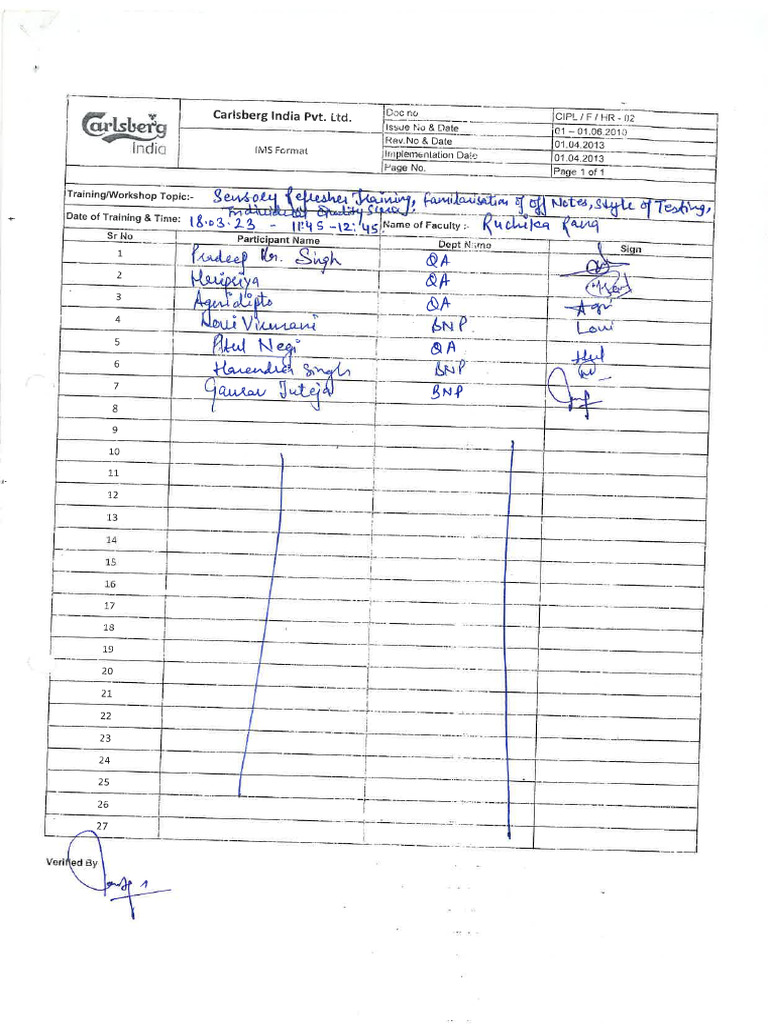 Carlsberg
India
Carlsberg India Pvt. Ltd.
IMS Format
Doc no CIPL / F / HR - 02
Issue No & Date 01 – 01.06.2010
Rev.No & Date 01.04.2013
Implementation Date 01.04.2013
Page No. Page 1 of 1
Training/Workshop Topic:- Sensory Refresher Training, familarisation of off Notes, Style of Testing,
Individual Quality
Date of Training & Time: 18.03.23 - 11:45 - 12:45 Name of Faculty :- Ruchika Rana
Sr No Participant Name Dept Name Sign
1 Pradeep Kr. Singh QA
2 Haripriya QA
3 Agnidipto QA Agni
4 Loui Virmani BNP Loui
5 Atul Negi QA Atul
6 Harendra Singh BNP
7 Gaurav Juteja BNP
8
9
10
11
12
13
14
15
16
17
18
19
20
21
22
23
24
25
26
27
Verified By